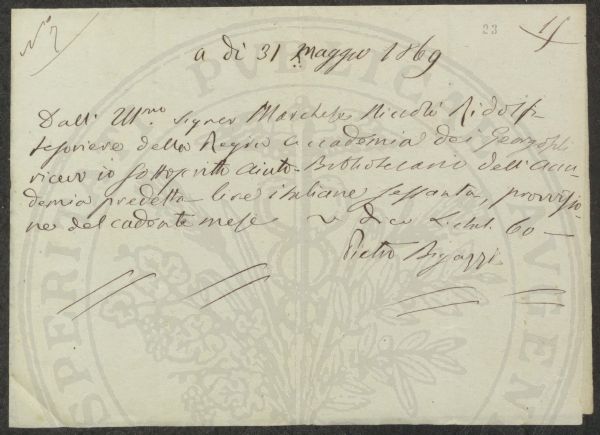 N° 7
23
a dì 31 Maggio 1869
Dall' Ill.mo signor Marchese Niccolò Ridolfi
tesoriere della Regia accademia dei Georgofili
ricevo io sottoscritto aiuto-Bibliotecario dell'Acca-
demia predetta lire italiane sessanta, provvisio-
ne del cadente mese dico L. ital. 60 —
Pietro Bigazzi
PROSPERITATI PUBLICAE AUGENDAE